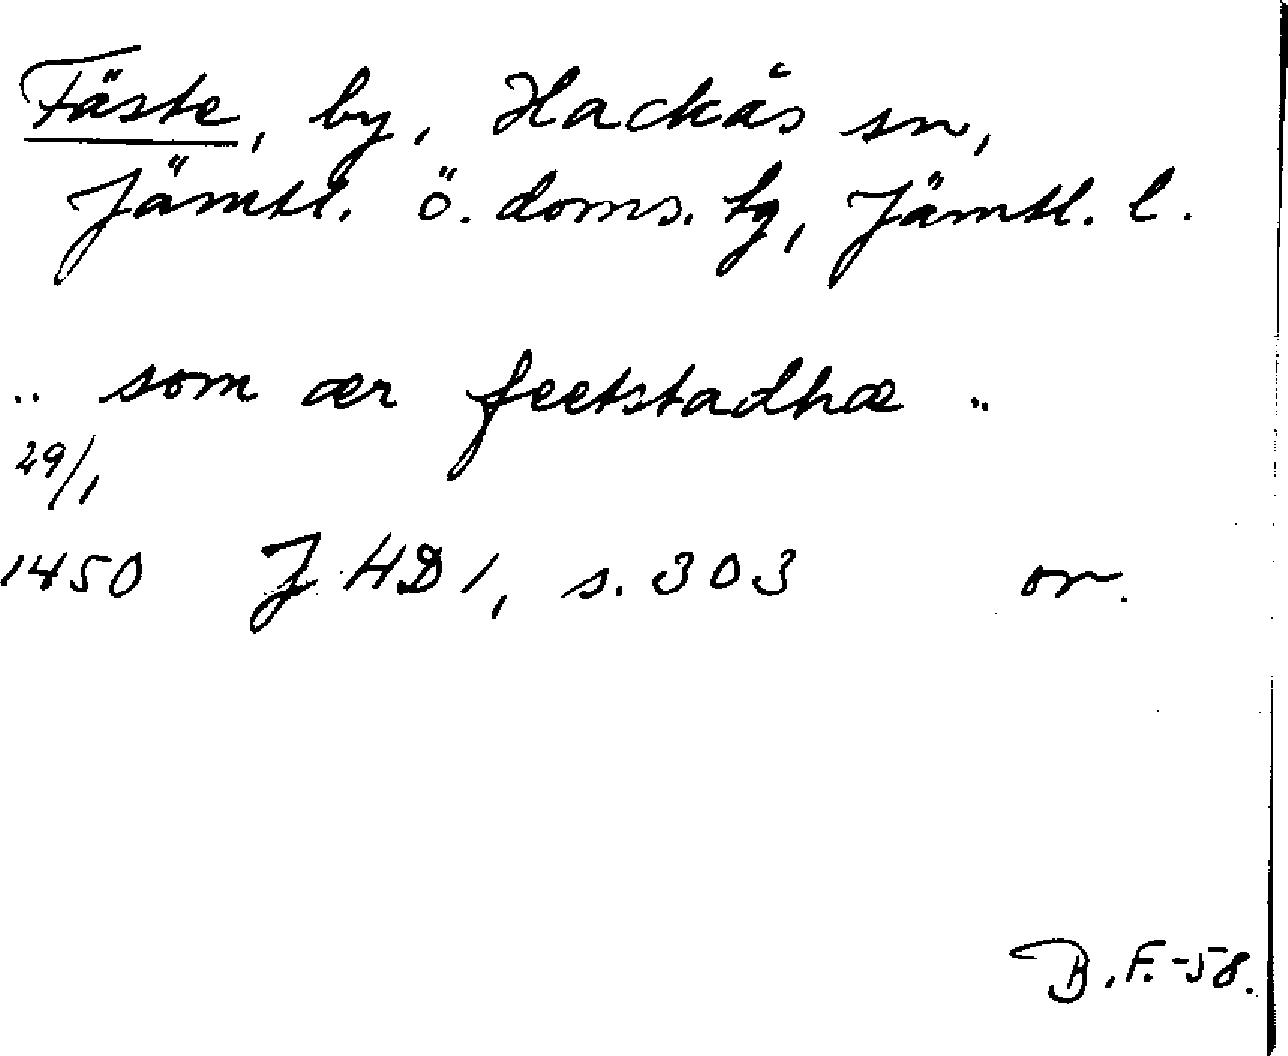 Fäste, by, Hackås sn,
Jämtl. ö. doms. tg, Jämtl. l.
.. som ær feetstadhæ ..
29/1
1450 J HD 1, s. 303 or.
B.F.-58.